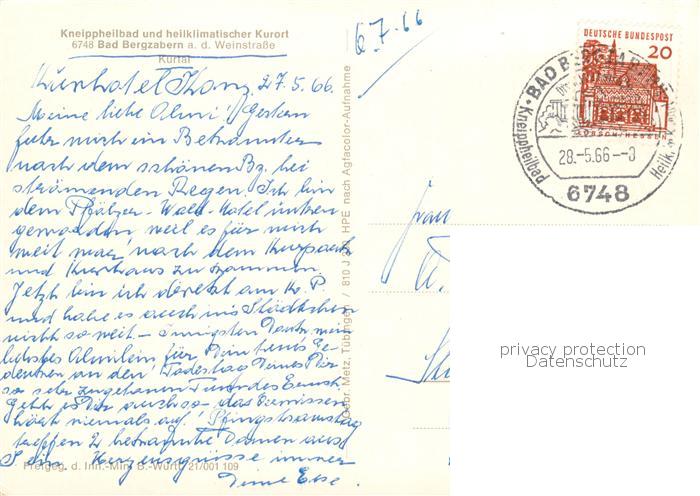 Kneippheilbad und heilklimatischer Kurort
6748 Bad Bergzabern a. d. Weinstraße
Kurtal
6.7.66
Kurhotel Kranz 27.5.66.
Meine liebe Almi! Gestern
fuhr mich ein Bekannter
nach dem schönen Bg. bei
strömenden Regen. Ich bin
dem Pfälzer-Wald-Hotel untreu
geworden weil es für mich
weit war nach dem Kurpark
und Kurhaus zu
Jetzt bin ich direkt am K. P.
und habe es auch ins Städtchen
nicht so weit. – Innigsten Dank mein
liebstes Almilein für Dein treues Ge-
denken an den Todestag Deines Dir
so sehr zugetanen Freundes Ernst.
Geht es Dir auch so – das Vermissen
hört niemals auf! Pfingstsamstag
treffen 2 bekannte Damen aus
ein. Herzensgrüsse immer
Deine Else.
Freigeg. d. Inn.-Min. B.-Württ. 21/001 109
Gebr. Metz, Tübingen / 810 J HPE nach Agfacolor-Aufnahme
DEUTSCHE BUNDESPOST
20
LORSCH/HESSEN
BAD BERGZABERN
Kneippheilbad
Heilk
28.-5.66-
6748
Frau
privacy protection
Datenschutz